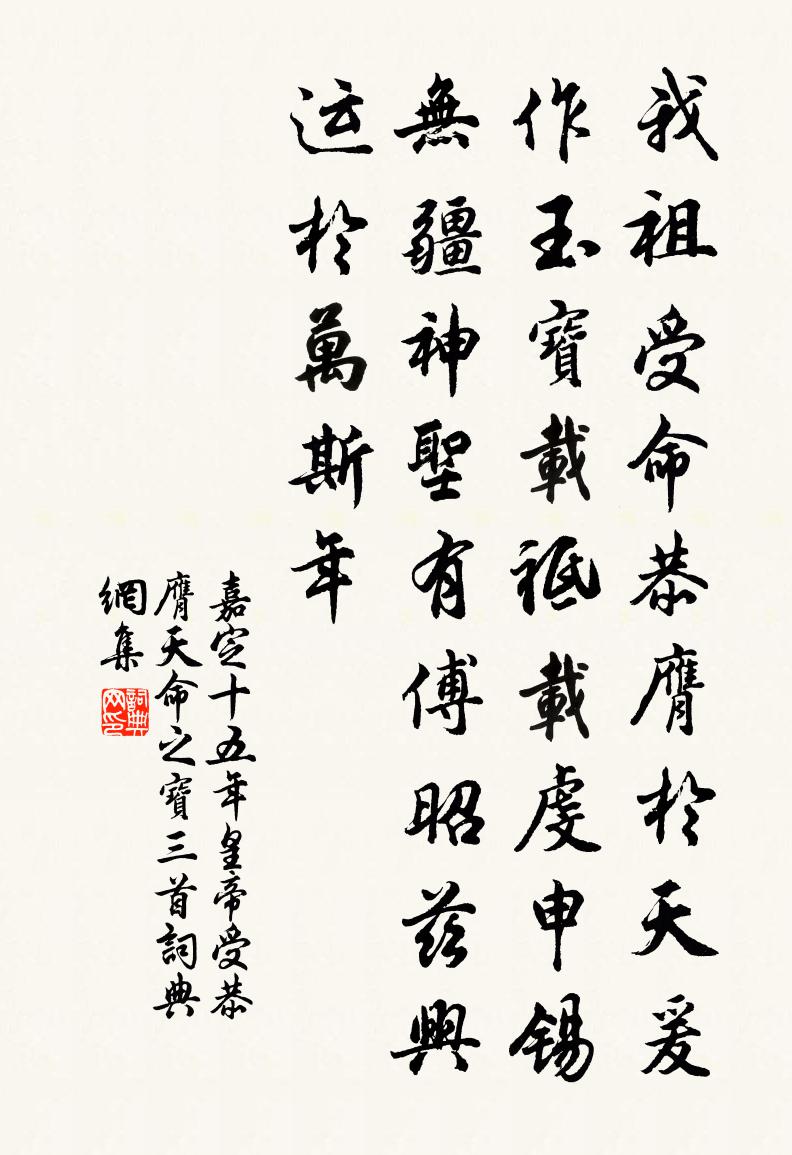 我祖受命恭膺於天爰
作玉寶載祗載虔申錫
無疆神聖有傅昭茲興
运於萬斯年
嘉定十五年皇帝受恭
膺天命之寶三首詞典
網集
詞典網印